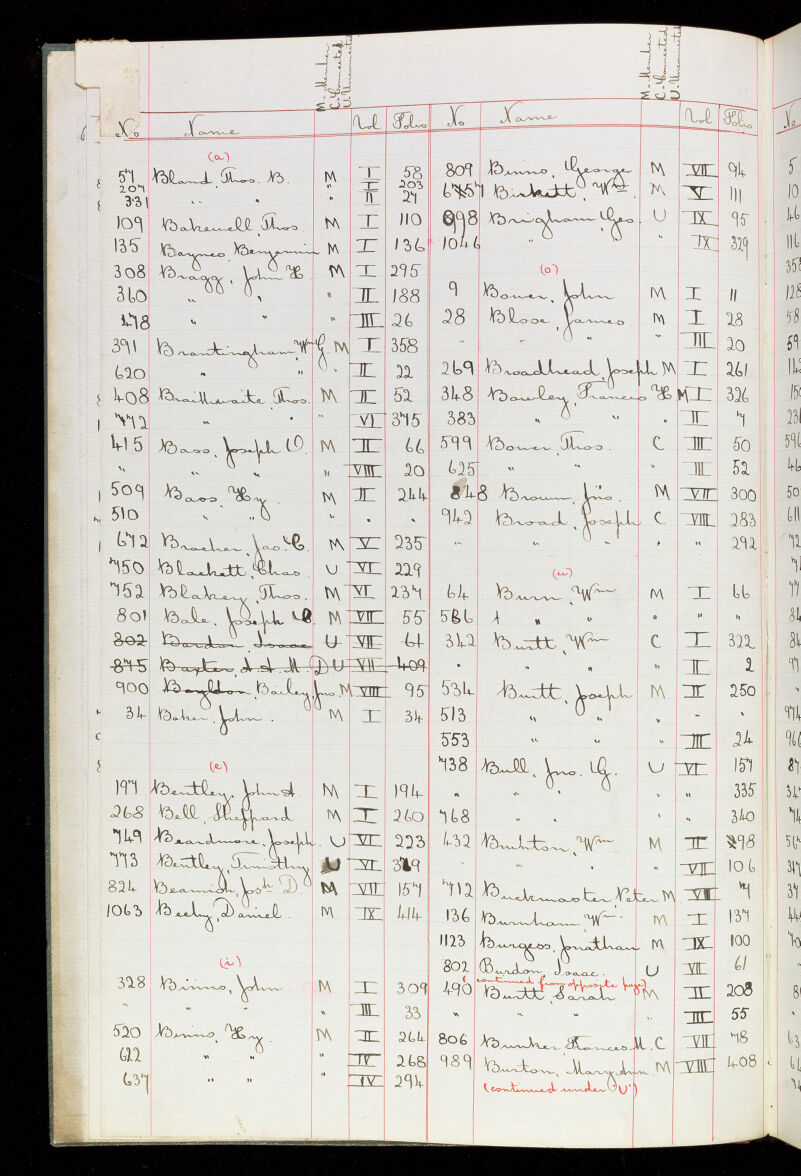 M - Member
C - Connected
U
No Name Vol Folio
(a)
57 Bland, Thos. B. M I 58
207 " " " I 203
331 " " " II 27
109 Bakewell Thos M I 110
135 Baynes, Benjamin M I 136
308 Bragg, John H M I 295
360 " " " II 188
478 " " " III 26
391 Brantingham, Wm G. M I 358
620 " " " II 22
408 Braithwaite, Thos. M II 52
772 " " " VI 375
415 Bass, Joseph O. M II 66
" " " " VIII 20
509 Bass, Hy. M II 244
510 " " " " "
672 Bracher, Jas. C. M V 235
750 Blackett, Chas U VI 229
752 Blakey, Thos. M VI 237
801 Bale, Joseph C. M VII 55
802 Bardon, Isaac U VII 61
875 Baxter, A. A. M. D U VII 409
900 Bayldon, Bailey, Jno. M VIII 95
34 Baker, John. M I 34
(e)
197 Bentley, John A M I 194
268 Bell, Sheppard M I 260
749 Beardmore, Joseph. U VI 223
773 Bentley, Timothy U VI 319
824 Beamish, Josh D. M VII 157
1063 Beeby, Daniel. M IX 414
(i)
328 Binns, John M I 309
" " " " III 33
520 Binns, Hy. M II 264
622 " " " IV 268
637 " " " IV 294
M - Member
C - Connected
U
No Name Vol Folio
809 Binns, George M VII 94
657 Birkett, Wm M V 111
898 Brigham, Geo. U IX 95
1046 " " IX 329
(o)
9 Bower, John M I 11
28 Blose, James. M I 28
" " " " III 20
269 Broadhead, Joseph M I 261
348 Bowley, Frances H M I 326
383 " " " II 7
599 Bower, Thos. C III 50
625 " " " III 52
848 Brown, Jno. M VII 300
942 Broad, Joseph C VIII 283
" " " " " 292
(u)
64 Burn, Wm M I 66
566 " " " " "
342 Burtt, Wm C I 322
" " " " II 2
534 Burtt, Joseph M II 250
513 " " " " "
553 " " " III 24
738 Bull, Jno. G. U VI 157
" " " " " 335
768 " " " " 340
432 Buxton, Wm M II 298
" " " VII 106
712 Buckmaster, Peter M VIII 7
136 Burnham, Wm. M I 137
1123 Burgess, Jonathan M IX 100
802 Burdon, Isaac. U VII 61
(continued from opposite page)
490 Burtt, Sarah M II 208
" " " " III 55
806 Bunker, Frances M. C VII 78
989 Burton, Mary Ann. M VIII 408
(continued under "U")
No
5
10
46
116